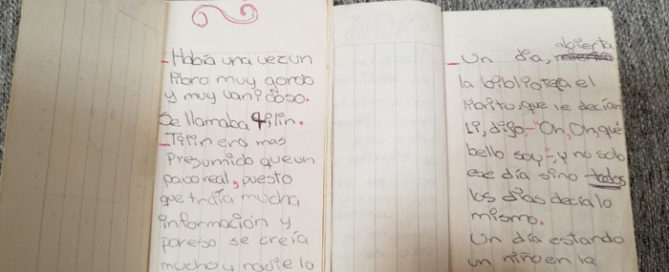 -Había una vez un
libro muy gordo
y muy vanidoso.
Se llamaba Tilin.
-Tilin era mas
presumido que un
pavo real, puesto
que traía mucha
información y
por eso se creía
mucho y nadie lo
abierta
-Un día,
la biblioteca el
librito, que le decían
Li, digo-"Oh, Oh, qué
bello soy"-, y no solo
ese día sino todos
los días decía lo
mismo.
Un día estando
un niño en la